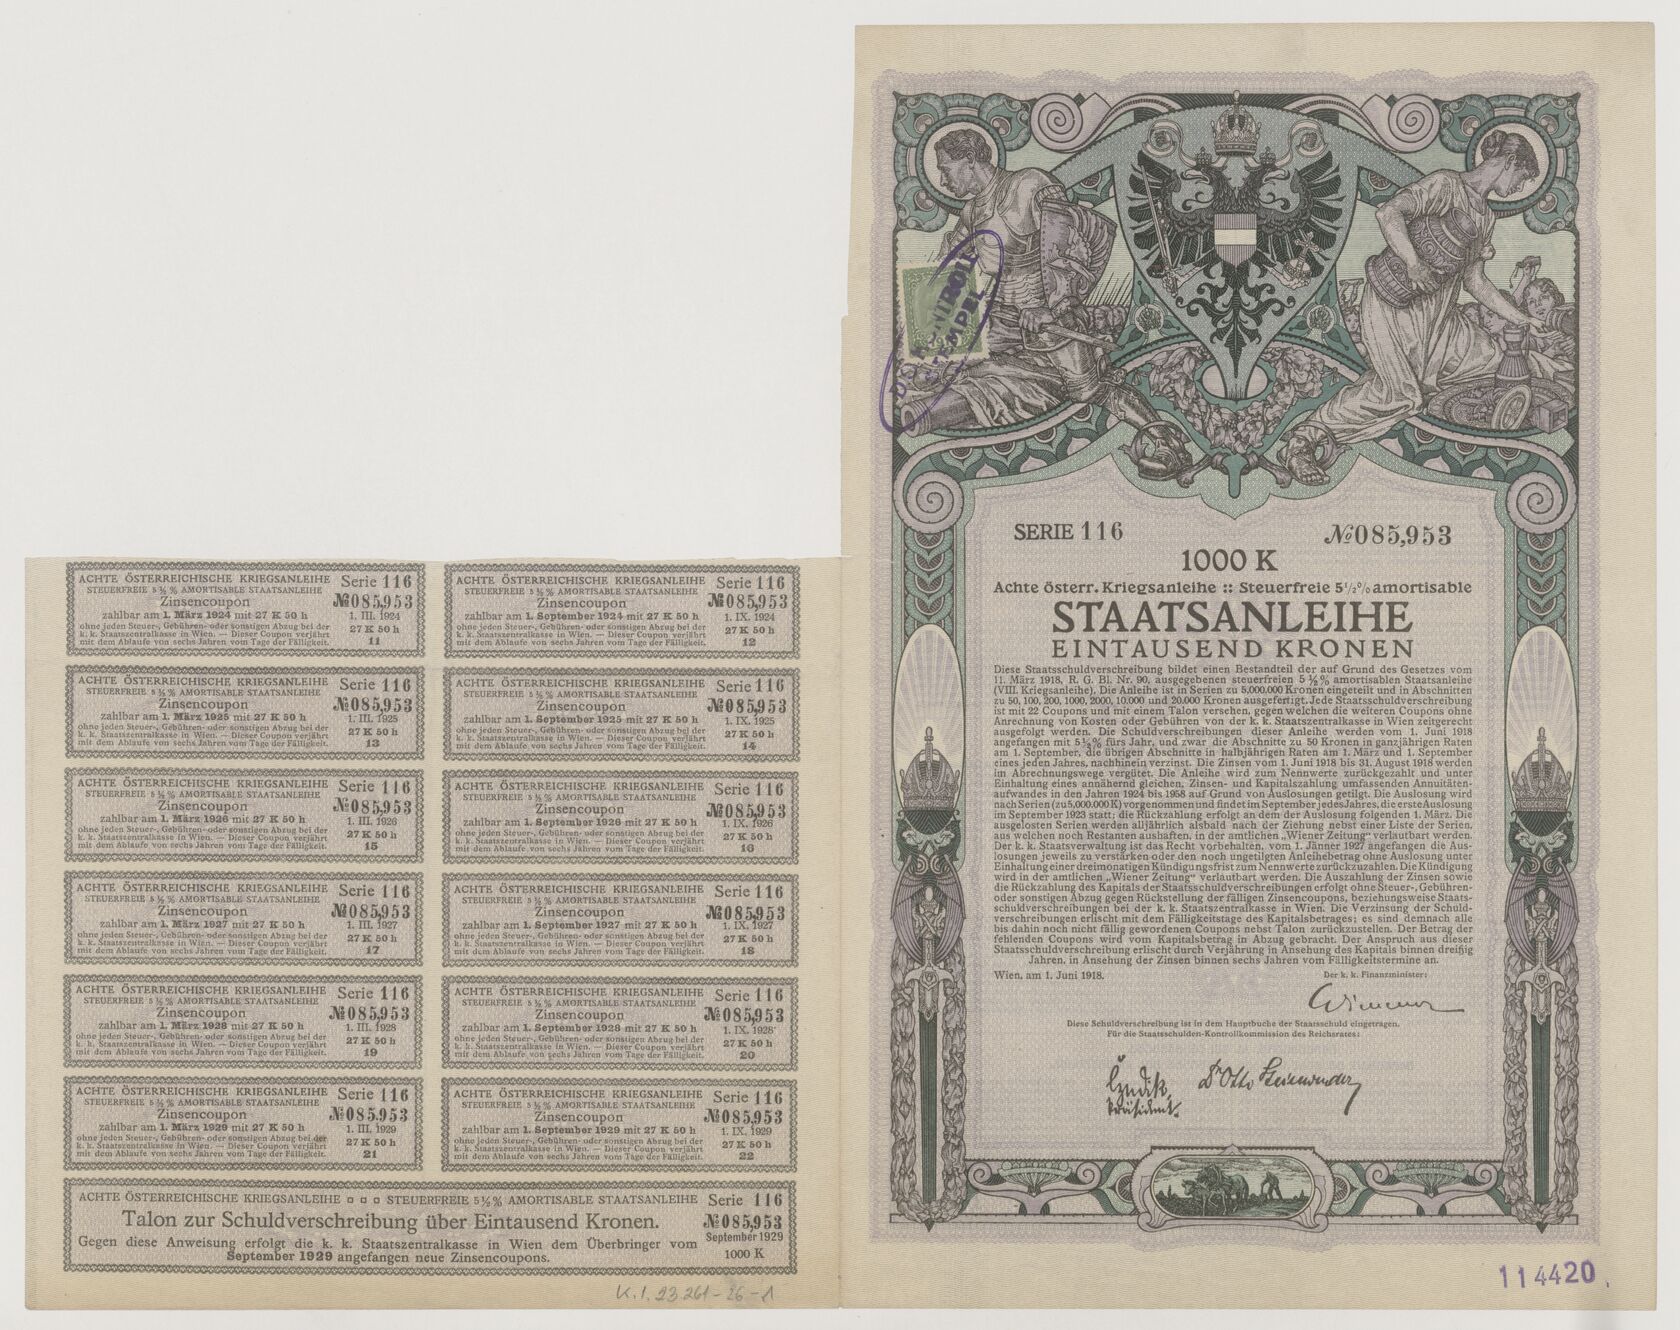 ACHTE ÖSTERREICHISCHE KRIEGSANLEIHE Serie 116
STEUERFREIE 5½% AMORTISABLE STAATSANLEIHE
Zinsencoupon №085,953
zahlbar am 1. März 1924 mit 27 K 50 h 1. III. 1924
ohne jeden Steuer-, Gebühren- oder sonstigen Abzug bei der 27 K 50 h
k. k. Staatszentralkasse in Wien. — Dieser Coupon verjährt
mit dem Ablaufe von sechs Jahren vom Tage der Fälligkeit. 11
ACHTE ÖSTERREICHISCHE KRIEGSANLEIHE Serie 116
STEUERFREIE 5½% AMORTISABLE STAATSANLEIHE
Zinsencoupon №085,953
zahlbar am 1. September 1924 mit 27 K 50 h 1. IX. 1924
ohne jeden Steuer-, Gebühren- oder sonstigen Abzug bei der 27 K 50 h
k. k. Staatszentralkasse in Wien. — Dieser Coupon verjährt
mit dem Ablaufe von sechs Jahren vom Tage der Fälligkeit. 12
ACHTE ÖSTERREICHISCHE KRIEGSANLEIHE Serie 116
STEUERFREIE 5½% AMORTISABLE STAATSANLEIHE
Zinsencoupon №085,953
zahlbar am 1. März 1925 mit 27 K 50 h 1. III. 1925
ohne jeden Steuer-, Gebühren- oder sonstigen Abzug bei der 27 K 50 h
k. k. Staatszentralkasse in Wien. — Dieser Coupon verjährt
mit dem Ablaufe von sechs Jahren vom Tage der Fälligkeit. 13
ACHTE ÖSTERREICHISCHE KRIEGSANLEIHE Serie 116
STEUERFREIE 5½% AMORTISABLE STAATSANLEIHE
Zinsencoupon №085,953
zahlbar am 1. September 1925 mit 27 K 50 h 1. IX. 1925
ohne jeden Steuer-, Gebühren- oder sonstigen Abzug bei der 27 K 50 h
k. k. Staatszentralkasse in Wien. — Dieser Coupon verjährt
mit dem Ablaufe von sechs Jahren vom Tage der Fälligkeit. 14
ACHTE ÖSTERREICHISCHE KRIEGSANLEIHE Serie 116
STEUERFREIE 5½% AMORTISABLE STAATSANLEIHE
Zinsencoupon №085,953
zahlbar am 1. März 1926 mit 27 K 50 h 1. III. 1926
ohne jeden Steuer-, Gebühren- oder sonstigen Abzug bei der 27 K 50 h
k. k. Staatszentralkasse in Wien. — Dieser Coupon verjährt
mit dem Ablaufe von sechs Jahren vom Tage der Fälligkeit. 15
ACHTE ÖSTERREICHISCHE KRIEGSANLEIHE Serie 116
STEUERFREIE 5½% AMORTISABLE STAATSANLEIHE
Zinsencoupon №085,953
zahlbar am 1. September 1926 mit 27 K 50 h 1. IX. 1926
ohne jeden Steuer-, Gebühren- oder sonstigen Abzug bei der 27 K 50 h
k. k. Staatszentralkasse in Wien. — Dieser Coupon verjährt
mit dem Ablaufe von sechs Jahren vom Tage der Fälligkeit. 16
ACHTE ÖSTERREICHISCHE KRIEGSANLEIHE Serie 116
STEUERFREIE 5½% AMORTISABLE STAATSANLEIHE
Zinsencoupon №085,953
zahlbar am 1. März 1927 mit 27 K 50 h 1. III. 1927
ohne jeden Steuer-, Gebühren- oder sonstigen Abzug bei der 27 K 50 h
k. k. Staatszentralkasse in Wien. — Dieser Coupon verjährt
mit dem Ablaufe von sechs Jahren vom Tage der Fälligkeit. 17
ACHTE ÖSTERREICHISCHE KRIEGSANLEIHE Serie 116
STEUERFREIE 5½% AMORTISABLE STAATSANLEIHE
Zinsencoupon №085,953
zahlbar am 1. September 1927 mit 27 K 50 h 1. IX. 1927
ohne jeden Steuer-, Gebühren- oder sonstigen Abzug bei der 27 K 50 h
k. k. Staatszentralkasse in Wien. — Dieser Coupon verjährt
mit dem Ablaufe von sechs Jahren vom Tage der Fälligkeit. 18
ACHTE ÖSTERREICHISCHE KRIEGSANLEIHE Serie 116
STEUERFREIE 5½% AMORTISABLE STAATSANLEIHE
Zinsencoupon №085,953
zahlbar am 1. März 1928 mit 27 K 50 h 1. III. 1928
ohne jeden Steuer-, Gebühren- oder sonstigen Abzug bei der 27 K 50 h
k. k. Staatszentralkasse in Wien. — Dieser Coupon verjährt
mit dem Ablaufe von sechs Jahren vom Tage der Fälligkeit. 19
ACHTE ÖSTERREICHISCHE KRIEGSANLEIHE Serie 116
STEUERFREIE 5½% AMORTISABLE STAATSANLEIHE
Zinsencoupon №085,953
zahlbar am 1. September 1928 mit 27 K 50 h 1. IX. 1928
ohne jeden Steuer-, Gebühren- oder sonstigen Abzug bei der 27 K 50 h
k. k. Staatszentralkasse in Wien. — Dieser Coupon verjährt
mit dem Ablaufe von sechs Jahren vom Tage der Fälligkeit. 20
ACHTE ÖSTERREICHISCHE KRIEGSANLEIHE Serie 116
STEUERFREIE 5½% AMORTISABLE STAATSANLEIHE
Zinsencoupon №085,953
zahlbar am 1. März 1929 mit 27 K 50 h 1. III. 1929
ohne jeden Steuer-, Gebühren- oder sonstigen Abzug bei der 27 K 50 h
k. k. Staatszentralkasse in Wien. — Dieser Coupon verjährt
mit dem Ablaufe von sechs Jahren vom Tage der Fälligkeit. 21
ACHTE ÖSTERREICHISCHE KRIEGSANLEIHE Serie 116
STEUERFREIE 5½% AMORTISABLE STAATSANLEIHE
Zinsencoupon №085,953
zahlbar am 1. September 1929 mit 27 K 50 h 1. IX. 1929
ohne jeden Steuer-, Gebühren- oder sonstigen Abzug bei der 27 K 50 h
k. k. Staatszentralkasse in Wien. — Dieser Coupon verjährt
mit dem Ablaufe von sechs Jahren vom Tage der Fälligkeit. 22
ACHTE ÖSTERREICHISCHE KRIEGSANLEIHE ▫ ▫ ▫ STEUERFREIE 5½% AMORTISABLE STAATSANLEIHE Serie 116
Talon zur Schuldverschreibung über Eintausend Kronen. №085,953
Gegen diese Anweisung erfolgt die k. k. Staatszentralkasse in Wien dem Überbringer vom September 1929
September 1929 angefangen neue Zinsencoupons. 1000 K
K.I. 23.261-26-1
KONTROLL
STEMPEL
SERIE 116 №085,953
1000 K
Achte österr. Kriegsanleihe :: Steuerfreie 5½% amortisable
STAATSANLEIHE
EINTAUSEND KRONEN
Diese Staatsschuldverschreibung bildet einen Bestandteil der auf Grund des Gesetzes vom
11. März 1918, R. G. Bl. Nr. 90, ausgegebenen steuerfreien 5½% amortisablen Staatsanleihe
(VIII. Kriegsanleihe). Die Anleihe ist in Serien zu 5,000.000 Kronen eingeteilt und in Abschnitten
zu 50, 100, 200, 1000, 2000, 10.000 und 20.000 Kronen ausgefertigt. Jede Staatsschuldverschreibung
ist mit 22 Coupons und mit einem Talon versehen, gegen welchen die weiteren Coupons ohne
Anrechnung von Kosten oder Gebühren von der k. k. Staatszentralkasse in Wien zeitgerecht
ausgefolgt werden. Die Schuldverschreibungen dieser Anleihe werden vom 1. Juni 1918
angefangen mit 5½% fürs Jahr, und zwar die Abschnitte zu 50 Kronen in ganzjährigen Raten
am 1. September, die übrigen Abschnitte in halbjährigen Raten am 1. März und 1. September
eines jeden Jahres, nachhinein verzinst. Die Zinsen vom 1. Juni 1918 bis 31. August 1918 werden
im Abrechnungswege vergütet. Die Anleihe wird zum Nennwerte zurückgezahlt und unter
Einhaltung eines annähernd gleichen, Zinsen- und Kapitalszahlung umfassenden Annuitäten-
aufwandes in den Jahren 1924 bis 1958 auf Grund von Auslosungen getilgt. Die Auslosung wird
nach Serien (zu 5,000.000 K) vorgenommen und findet im September jedes Jahres, die erste Auslosung
im September 1923 statt; die Rückzahlung erfolgt an dem der Auslosung folgenden 1. März. Die
ausgelosten Serien werden alljährlich alsbald nach der Ziehung nebst einer Liste der Serien,
aus welchen noch Restanten aushaften, in der amtlichen „Wiener Zeitung“ verlautbart werden.
Der k. k. Staatsverwaltung ist das Recht vorbehalten, vom 1. Jänner 1927 angefangen die Aus-
losungen jeweils zu verstärken oder den noch ungetilgten Anleihebetrag ohne Auslosung unter
Einhaltung einer dreimonatigen Kündigungsfrist zum Nennwerte zurückzuzahlen. Die Kündigung
wird in der amtlichen „Wiener Zeitung“ verlautbart werden. Die Auszahlung der Zinsen sowie
die Rückzahlung des Kapitals der Staatsschuldverschreibungen erfolgt ohne Steuer-, Gebühren-
oder sonstigen Abzug gegen Rückstellung der fälligen Zinsencoupons, beziehungsweise Staats-
schuldverschreibungen bei der k. k. Staatszentralkasse in Wien. Die Verzinsung der Schuld-
verschreibungen erlischt mit dem Fälligkeitstage des Kapitalsbetrages; es sind demnach alle
bis dahin noch nicht fällig gewordenen Coupons nebst Talon zurückzustellen. Der Betrag der
fehlenden Coupons wird vom Kapitalsbetrag in Abzug gebracht. Der Anspruch aus dieser
Staatsschuldverschreibung erlischt durch Verjährung in Ansehung des Kapitals binnen dreißig
Jahren, in Ansehung der Zinsen binnen sechs Jahren vom Fälligkeitstermine an.
Wien, am 1. Juni 1918. Der k. k. Finanzminister:
Wimmer
Diese Schuldverschreibung ist in dem Hauptbuche der Staatsschuld eingetragen.
Für die Staatsschulden-Kontrollkommission des Reichsrates:
Dr Otto Steinwender
Präsident.
114420.